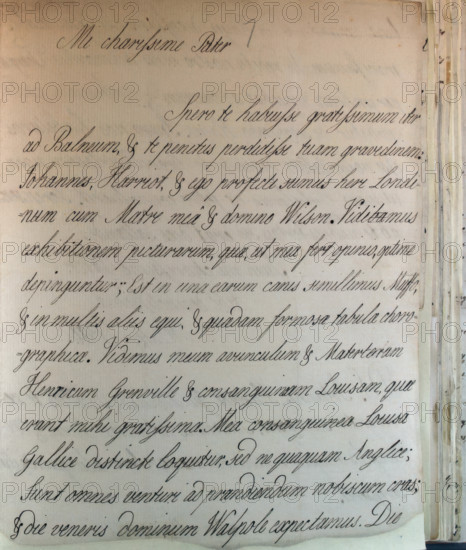 Mi charissime Pater
Spero te habuisse gratissimum iter
ad Balneum, & te penitus perdidisse tuam gravedinem:
Johannes, Harriot, & ego profecti sumus heri Londi-
-num cum Matre meâ & domino Wilson. Vidibamus
exhibitionem picturarum, quæ, ut mea fert opinio, optime
depinguntur; Est in una earum canis simillimus Moffo,
& in multis aliis equi, & quædam formosa tabula choro-
graphica. Vidimus meum avunculum & Materteram
Henricum Grenville & consanguineam Louisam, quæ
erant mihi gratissima. Mea consanguinea Louisa
Gallice distincte loquitur, sed nequaquam Anglice;
Sunt omnes venturi ad prandiendum nobiscum cras;
& die veneris dominum Walpole expectamus. Die